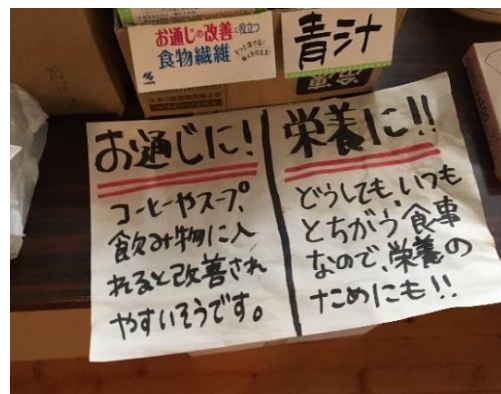 お通じの改善に役立つ
食物繊維
青汁
冷凍
お通じに!
コーヒーやスープ、
飲み物に入
れると改善され
やすいそうです。
栄養に!!
どうしても、いつも
とちがう食事
なので、栄養の
ためにも!!